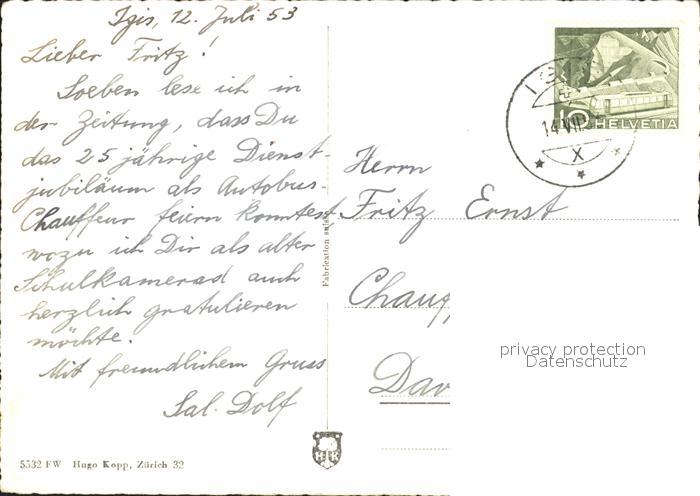 Igis, 12. Juli 53
Lieber Fritz!
Soeben lese ich in
der Zeitung, dass Du
das 25 jährige Dienst-
jubiläum als Autobus-
Chauffeur feiern konntest
wozu ich Dir als alter
Schulkamerad auch
herzlich gratulieren
möchte.
Mit freundlichem Gruss
Sal. Dolf
5532 FW Hugo Kopp, Zürich 32
Fabrication suisse
HK
10 HELVETIA
14.VII.
X
Herrn
Fritz Ernst
Chauf
Dav
privacy protection
Datenschutz